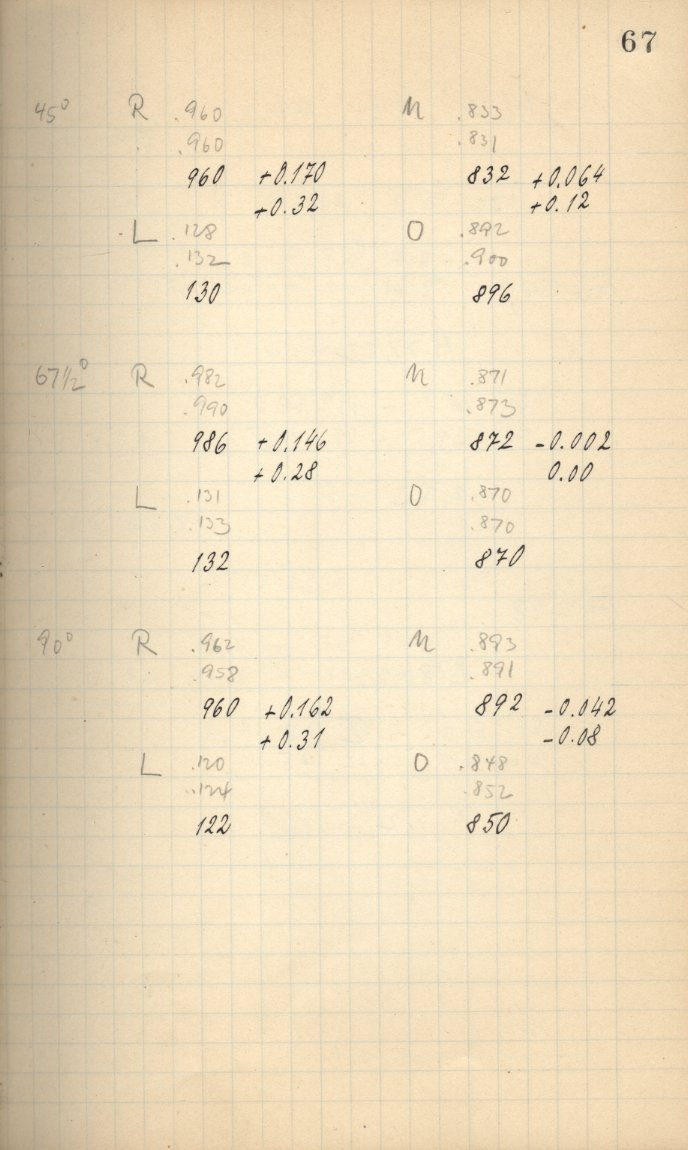 67
45° R .960 M .833
.960 .831
960 +0.170 832 +0.064
+0.32 +0.12
L .128 O .892
.132 .900
130 896
67½° R .982 M .871
.990 .873
986 +0.146 872 -0.002
+0.28 0.00
L .131 O .870
.133 .870
132 870
90° R .962 M .893
.958 .891
960 +0.162 892 -0.042
+0.31 -0.08
L .120 O .848
.124 .852
122 850